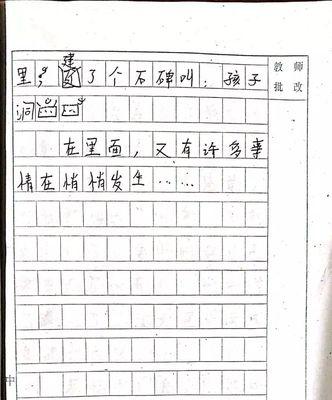 里，建了个石碑叫：孩子
洞
在里面，又有许多事
情在悄悄发生……
教师
批改
中